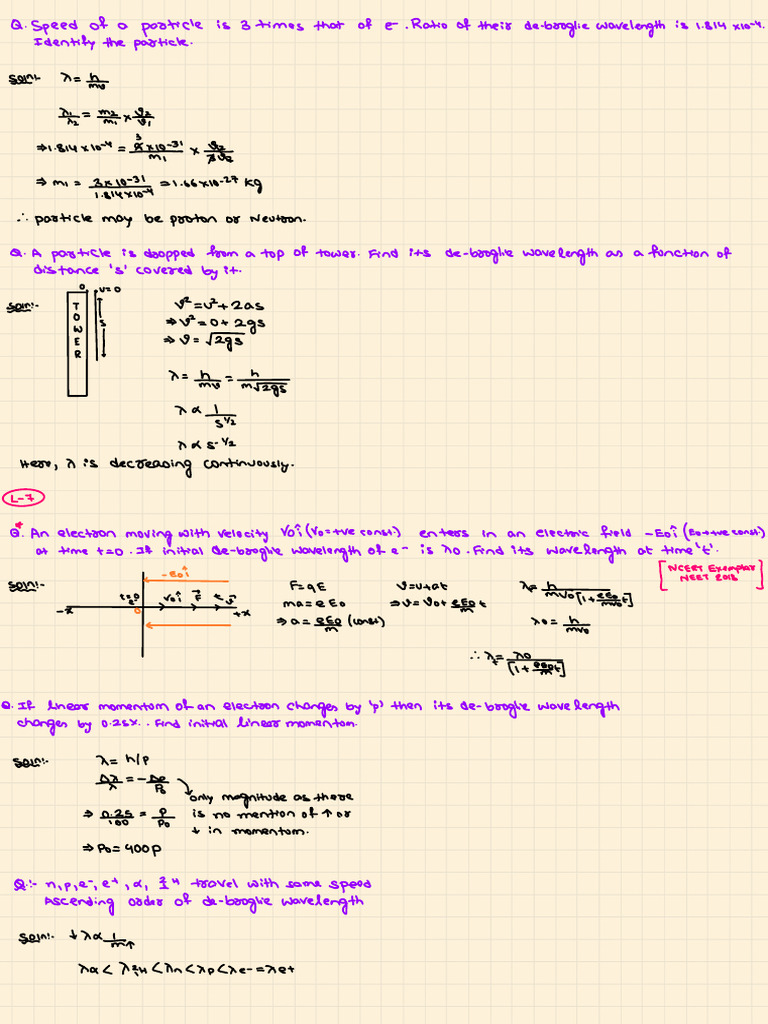 Q. Speed of a particle is 3 times that of e⁻. Ratio of their de-broglie wavelength is 1.814 x10⁻⁴.
Identify the particle.
Soln:- λ = h/mv
λ₁/λ₂ = m₂/m₁ × v₂/v₁
⇒ 1.814 × 10⁻⁴ = 9 3 × 10⁻³¹/m₁ × v₂/3v₂
⇒ m₁ = 3 × 10⁻³¹/1.814 × 10⁻⁴ = 1.66 × 10⁻²⁷ kg
∴ particle may be proton or Neutron.
Q. A particle is dropped from a top of tower. Find its de-broglie wavelength as a function of
distance 's' covered by it.
Soln:-
TOWER
0 u=0
s
v² = u² + 2as
⇒ v² = 0 + 2gs
⇒ v = √2gs
λ = h/mv = h/m√2gs
λ ∝ 1/s^1/2
λ ∝ s^-1/2
Here, λ is decreasing continuously.
L-7
Q*. An electron moving with velocity V₀î (V₀=+ve const.) enters in an electric field -E₀î (E₀=+ve const)
at time t=0. If initial de-broglie wavelength of e⁻ is λ₀. Find its wavelength at time 't'.
[NCERT Exemplar
NEET 2018]
Soln:-
-E₀î
t=0 e⁻ V₀î F⃗ t v⃗
-x 0 +x
F = qE
ma = eE₀
⇒ a = eE₀/m (const)
v = u + at
⇒ v = v₀ + eE₀/m t
λ = h/mv₀[1 + eE₀/mv₀ t]
λ₀ = h/mv₀
∴ λt = λ₀/[1 + eE₀/m t]
Q. If linear momentum of an electron changes by 'p' then its de-broglie wavelength
changes by 0.25%. Find initial linear momentum.
Soln:- λ = h/p
Δλ/λ = -Δp/p₀
only magnitude as there
is no mention of ↑ or
↓ in momentum.
⇒ 0.25/100 = p/p₀
⇒ P₀ = 400p
Q:- n, p, e⁻, e⁺, α, ²₁H travel with same speed
Ascending order of de-broglie wavelength
Soln:- ↓ λ ∝ 1/m↑
λα < λ²₁H < λn < λp < λe⁻ = λe⁺